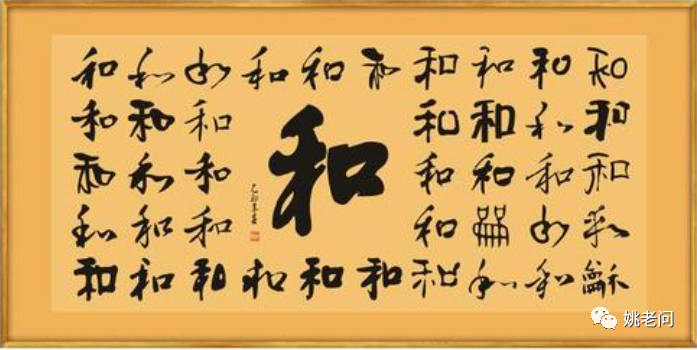 和和和和和和和和和和
和和和和和和和
和和和和和和和
和和和和和和
和和和和和和和和和龢
和
姚老问